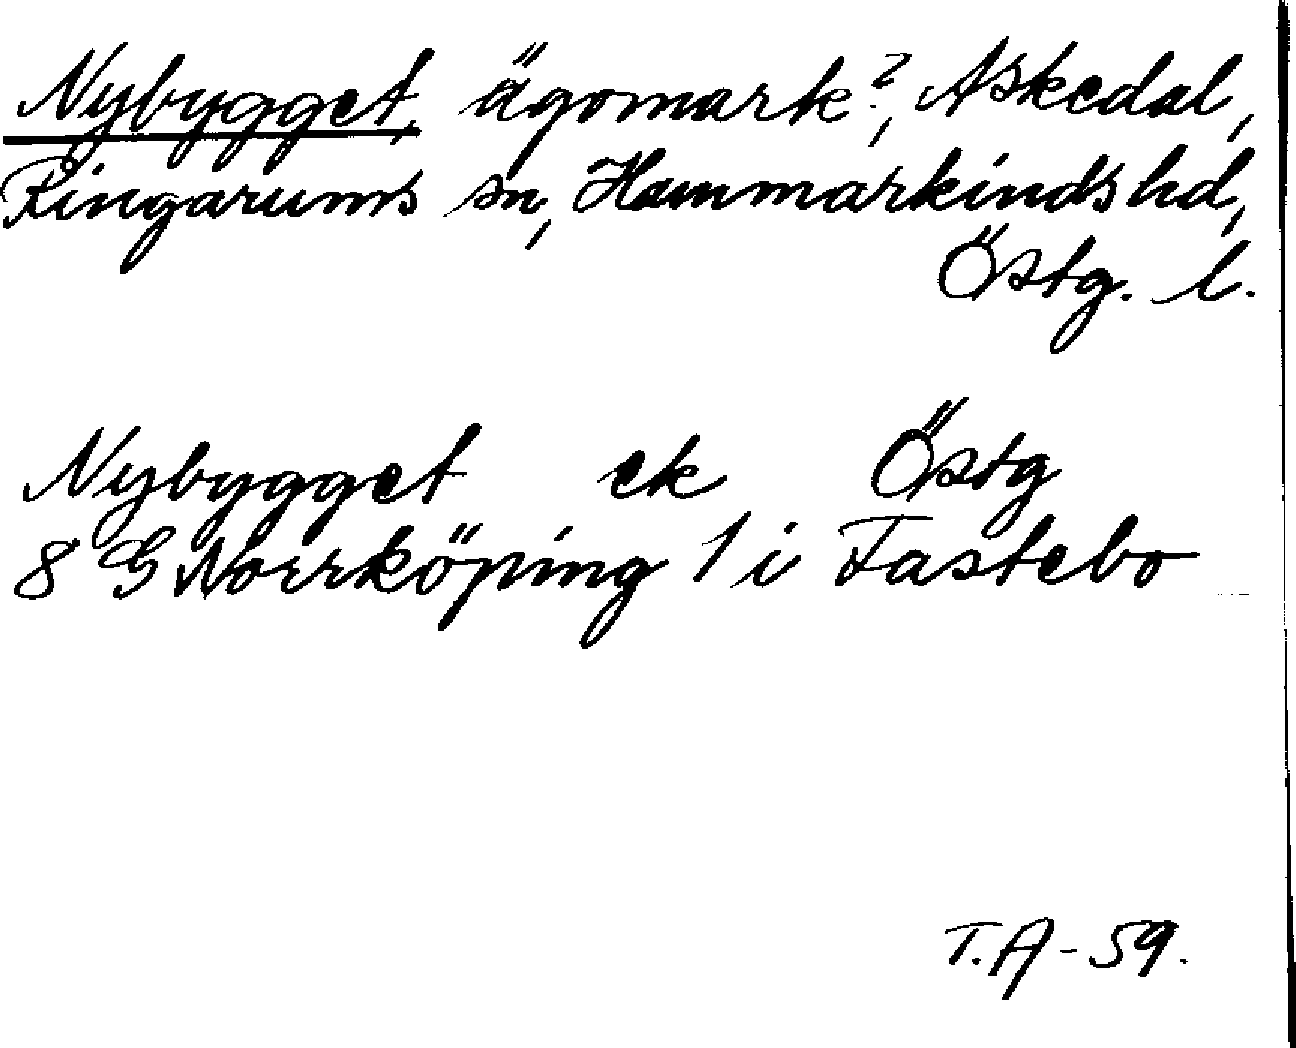 Nybygget, ägomark?, Askedal,
Ringarums sn, Hammarkinds hd,
Östg. l.
Nybygget ek Östg
8 G Norrköping 1 i Fastebo
T.A-59.